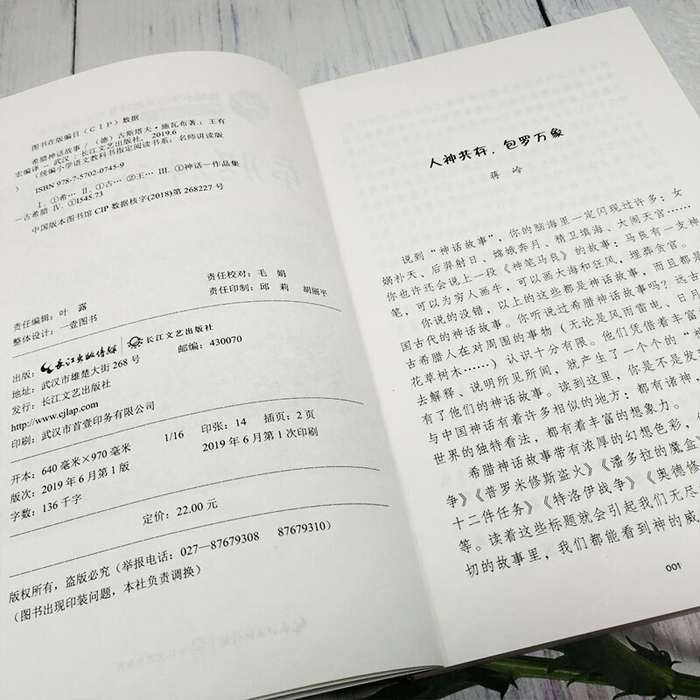 图书在版编目（CIP）数据
希腊神话故事／（德）古斯塔夫·施瓦布著；王有
宏编译.－武汉：长江文艺出版社，2019.6
（统编小学语文教科书指定阅读书系：名师讲读版
ISBN 978-7-5702-0745-9
Ⅰ.①希… Ⅱ.①古…②王… Ⅲ.①神话－作品集
－古希腊 Ⅳ.①I545.73
中国版本图书馆CIP数据核字(2018)第268227号
责任编辑：叶 露
责任校对：毛 娟
整体设计：一壹图书
责任印制：邱 莉 胡丽平
出版：长江出版传媒 长江文艺出版社
地址：武汉市雄楚大街268号
邮编：430070
发行：长江文艺出版社
http://www.cjlap.com
印刷：武汉市首壹印务有限公司
开本：640毫米×970毫米
1/16
印张：14
插页：2页
版次：2019年6月第1版
2019年6月第1次印刷
字数：136千字
定价：22.00元
版权所有，盗版必究（举报电话：027—87679308 87679310）
（图书出现印装问题，本社负责调换）
人神共存，包罗万象
蒋 岭
说到“神话故事”，你的脑海里一定闪现过许多：女
娲补天、后羿射日、嫦娥奔月、精卫填海、大闹天宫……
你也许还会说上一段《神笔马良》的故事：马良有一支神
笔，可以为穷人画牛，可以画大海和狂风，埋葬贪官。
你说的没错，以上的这些都是神话故事，而且都是
国古代的神话故事。你听说过希腊神话故事吗？远古
古希腊人在对周围的事物（无论是风雨雷电、日月
花草树木……）认识十分有限。他们凭借着丰富
去解释、说明所见所闻，就产生了一个个的“神
有了他们的神话故事。读到这里，你是不是发
与中国神话有着许多相似的地方：都有诸神，
世界的独特看法，都有着丰富的想象力。
希腊神话故事带有浓厚的幻想色彩，
争》《普罗米修斯盗火》《潘多拉的魔盒》
十二件任务》《特洛伊战争》《奥德修
等。读着这些标题就会引起我们无尽
切的故事里，我们都能看到神的威
001